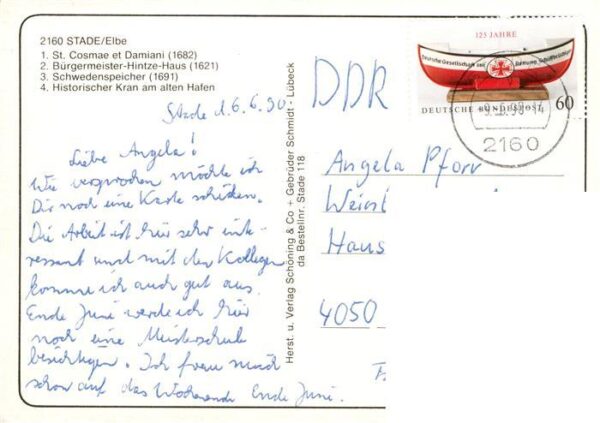 2160 STADE/Elbe
1. St. Cosmae et Damiani (1682)
2. Bürgermeister-Hintze-Haus (1621)
3. Schwedenspeicher (1691)
4. Historischer Kran am alten Hafen
Stade d. 6.6.90
Liebe Angela!
Wie versprochen möchte ich
Dir noch eine Karte schicken.
Die Arbeit ist hier sehr inte-
ressant und mit den Kollegen
komme ich auch gut aus.
Ende Juni werde ich hier
noch eine Meisterschule
besichtigen. Ich freue mich
schon auf das Wochenende Ende Juni.
Herst. u. Verlag Schöning & Co + Gebrüder Schmidt - Lübeck
da Bestellnr. Stade 118
DDR
125 JAHRE
Deutsche Gesellschaft zur Rettung Schiffbrüchiger
DEUTSCHE BUNDESPOST 60
2160
Angela Pforr
Haus
4050